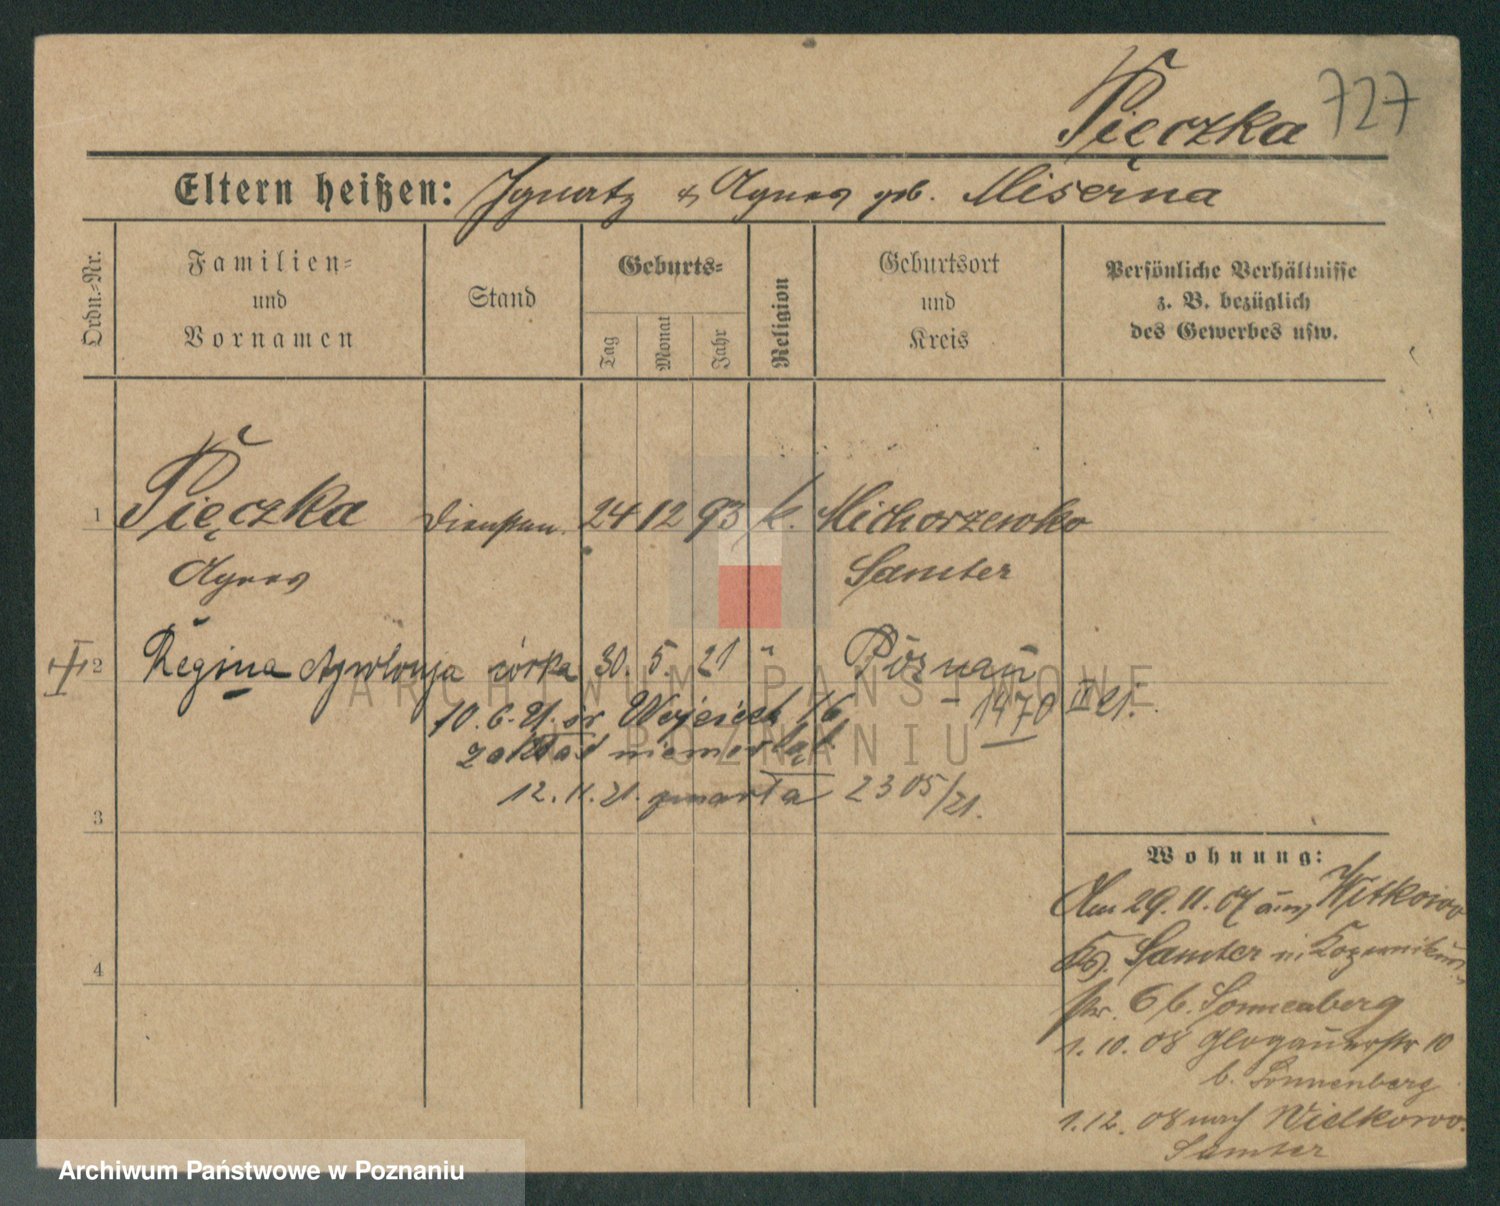 Pięczka 727
Eltern heißen: Ignatz & Agnes geb. Miserna
Ordn.-Nr.
Familien-
und
Vornamen
Stand
Geburts-
Tag
Monat
Jahr
Religion
Geburtsort
und
Kreis
Persönliche Verhältnisse
z. B. bezüglich
des Gewerbes usw.
1 Pięczka Dienstm. 24 12 93 k. Michorzewko
Agnes Samter
2 Regina Apolonja córka 30. 5. 21 " Poznań
10. 6. 21. św Wojciech 16 1970 II 21.
zakład niemowląt
12. 11. 21. zmarła 2305/21.
3
4
Wohnung:
Am 29. 11. 07 aus Witkowo
Kr. Samter n. Kopernikus-
str. 6 b. Sonnenberg
1. 10. 08 Glogauerstr 10
b. Sonnenberg
1. 12. 08 nach Wielkowo.
Samter
ARCHIWUM PAŃSTWOWE
W POZNANIU
Archiwum Państwowe w Poznaniu